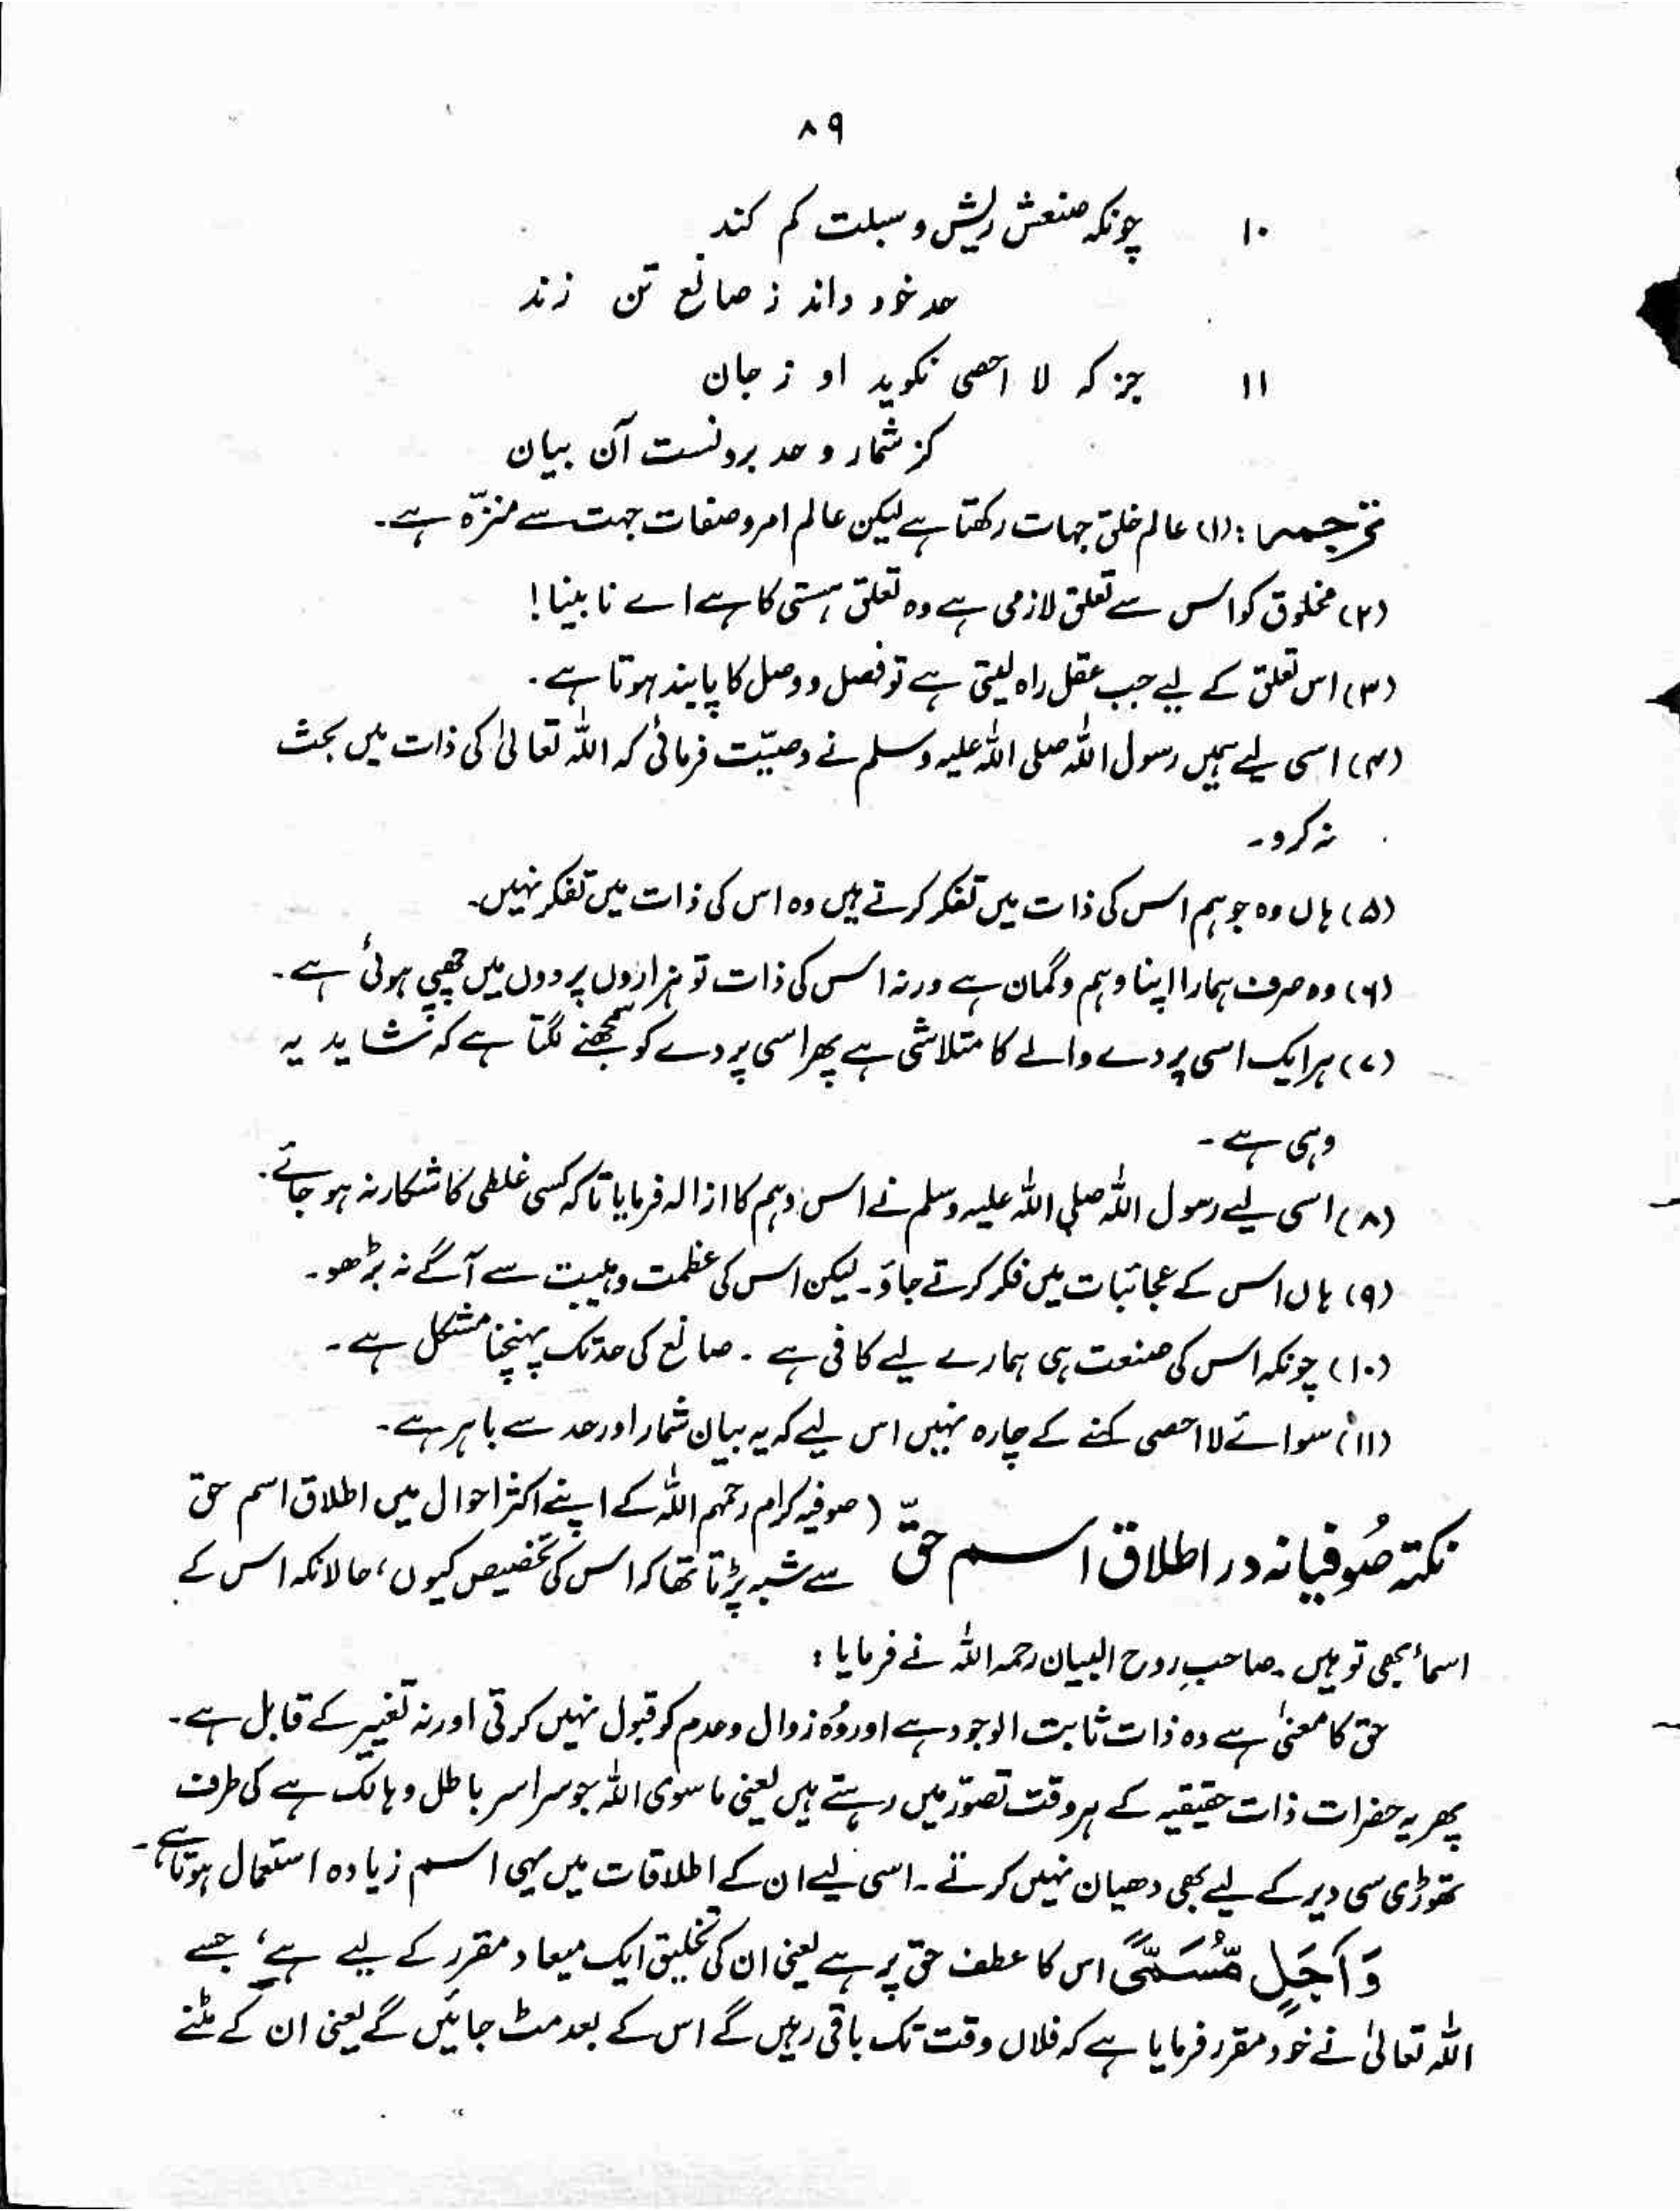 ۸۹
۱۰ چونکہ صنعش ریش و سبلت کم کند
حد خود داند ز صانع تن زند
۱۱ جز کہ لا احصی نگوید او ز جان
کز شمار و حد برونست آن بیان
ترجمہ : (۱) عالم خلق جہات رکھتا ہے لیکن عالم امر و صفات جہت سے منزّہ ہے۔
(۲) مخلوق کو اس سے تعلق لازمی ہے وہ تعلق ہستی کا ہے اے نابینا !
(۳) اس تعلق کے لیے جب عقل راہ لیتی ہے تو فصل و وصل کا پابند ہوتا ہے۔
(۴) اسی لیے ہمیں رسول اللہ صلی اللہ علیہ وسلم نے وصیّت فرمائی کہ اللہ تعالیٰ کی ذات میں بحث
نہ کرو۔
(۵) ہاں وہ جو ہم اس کی ذات میں تفکر کرتے ہیں وہ اس کی ذات میں تفکر نہیں۔
(۶) وہ صرف ہمارا اپنا وہم و گمان ہے ورنہ اس کی ذات تو ہزاروں پردوں میں چھپی ہوئی ہے۔
(۷) ہر ایک اسی پردے والے کا متلاشی ہے پھر اسی پردے کو سمجھنے لگتا ہے کہ شاید یہ
وہی ہے۔
(۸) اسی لیے رسول اللہ صلی اللہ علیہ وسلم نے اس وہم کا ازالہ فرمایا تاکہ کسی غلطی کا شکار نہ ہو جائے۔
(۹) ہاں اس کے عجائبات میں فکر کرتے جاؤ۔ لیکن اس کی عظمت و ہیبت سے آگے نہ بڑھو۔
(۱۰) چونکہ اس کی صنعت ہی ہمارے لیے کافی ہے ۔ صانع کی حد تک پہنچنا مشکل ہے۔
(۱۱) سوائے لا احصی کہنے کے چارہ نہیں اس لیے کہ یہ بیان شمار اور حد سے باہر ہے۔
نکتہ صُوفیانہ در اطلاق اسم حقّ (صوفیہ کرام رحمہم اللہ کے اپنے اکثر احوال میں اطلاق اسم حق
سے شبہ پڑتا تھا کہ اس کی تخصیص کیوں، حالانکہ اس کے
اسماء بھی تو ہیں۔ صاحبِ روح البیان رحمہ اللہ نے فرمایا :
حق کا معنیٰ ہے وہ ذات ثابت الوجود ہے اور وُہ زوال و عدم کو قبول نہیں کرتی اور نہ تغییر کے قابل ہے۔
پھر یہ حضرات ذات حقیقیہ کے ہر وقت تصوّر میں رہتے ہیں یعنی ماسوی اللہ جو سراسر باطل و ہالک ہے کی طرف
تھوڑی سی دیر کے لیے بھی دھیان نہیں کرتے۔ اسی لیے ان کے اطلاقات میں یہی اسم زیادہ استعمال ہوتا ہے۔
وَاَجَلٍ مُّسَمًّی اس کا عطف حق پر ہے یعنی ان کی تخلیق ایک میعاد مقرر کے لیے ہے، جسے
اللہ تعالیٰ نے خود مقرر فرمایا ہے کہ فلاں وقت تک باقی رہیں گے اس کے بعد مٹ جائیں گے یعنی ان کے مٹنے